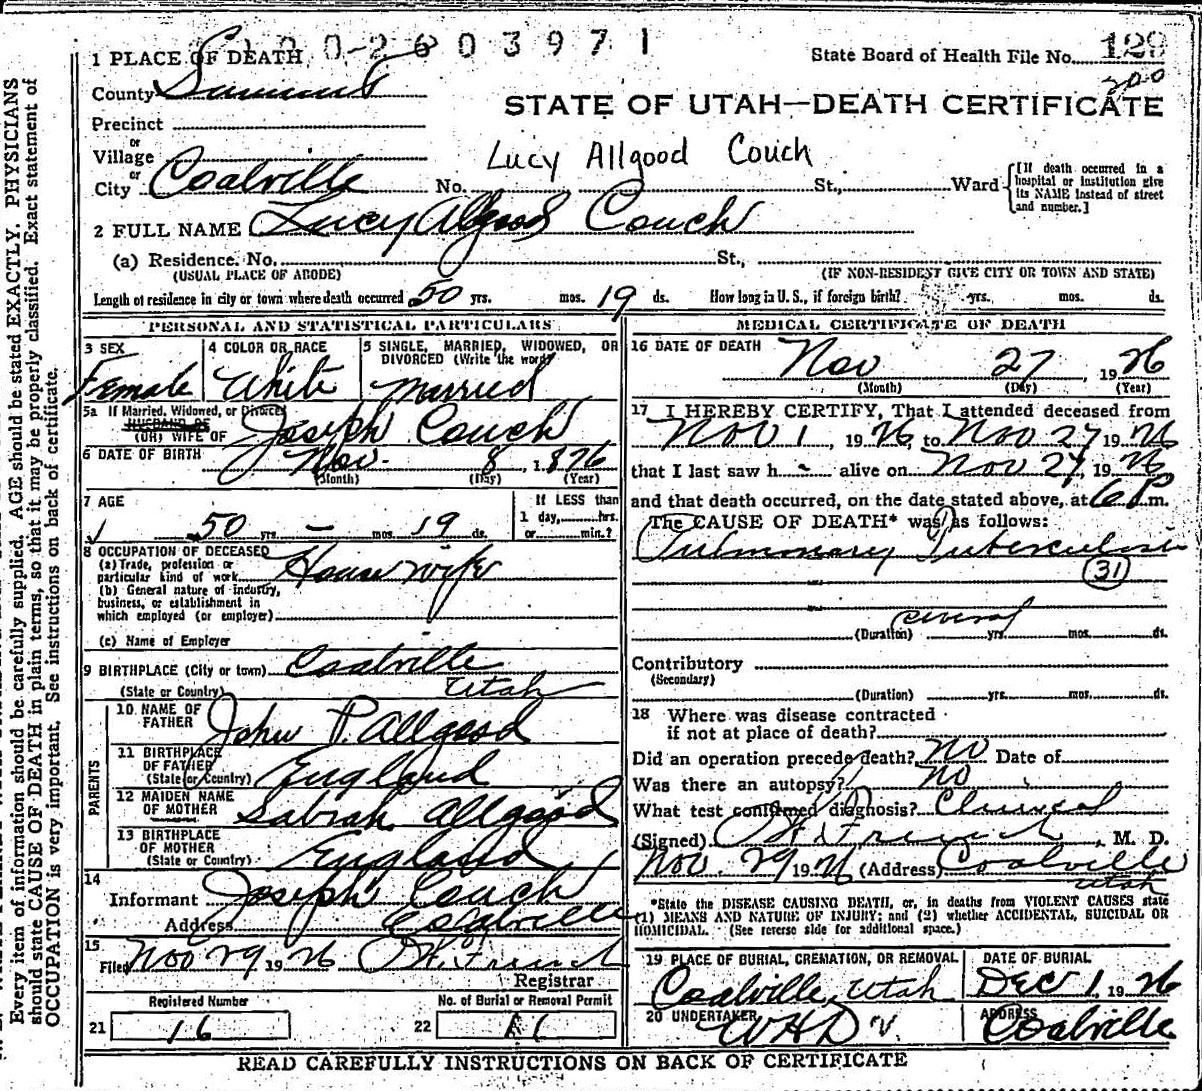 2603971
1 PLACE OF DEATH
State Board of Health File No. 129
200
County Summit
STATE OF UTAH—DEATH CERTIFICATE
Precinct
or
Village
Lucy Allgood Couch
or
City Coalville No. St., Ward
[If death occurred in a hospital or institution give its NAME instead of street and number.]
2 FULL NAME Lucy Allgood Couch
(a) Residence. No. St.,
(USUAL PLACE OF ABODE) (IF NON-RESIDENT GIVE CITY OR TOWN AND STATE)
Length of residence in city or town where death occurred 50 yrs. mos. 19 ds. How long in U.S., if foreign birth? yrs. mos. ds.
PERSONAL AND STATISTICAL PARTICULARS
3 SEX
Female
4 COLOR OR RACE
White
5 SINGLE, MARRIED, WIDOWED, OR
DIVORCED (Write the word)
Married
5a If Married, Widowed, or Divorced
HUSBAND OF
(OR) WIFE OF Joseph Couch
6 DATE OF BIRTH Nov. 8, 1876
(Month) (Day) (Year)
7 AGE
50 yrs. – mos. 19 ds.
If LESS than
1 day, hrs.
or min.?
8 OCCUPATION OF DECEASED
(a) Trade, profession or
particular kind of work House wife
(b) General nature of industry,
business, or establishment in
which employed (or employer)
(c) Name of Employer
9 BIRTHPLACE (City or town) Coalville
(State or Country) Utah
PARENTS
10 NAME OF
FATHER John P. Allgood
11 BIRTHPLACE
OF FATHER
(State or Country) England
12 MAIDEN NAME
OF MOTHER Sabrah Allgood
13 BIRTHPLACE
OF MOTHER
(State or Country) England
14
Informant Joseph Couch
Address Coalville
15
Filed Nov 29 1926 French
Registrar
Registered Number
21 16
No. of Burial or Removal Permit
22
MEDICAL CERTIFICATE OF DEATH
16 DATE OF DEATH
Nov 27 1926
(Month) (Day) (Year)
17 I HEREBY CERTIFY, That I attended deceased from
Nov 1, 1926, to Nov 27 1926
that I last saw h alive on Nov 27, 1926
and that death occurred, on the date stated above, at 6 P m.
The CAUSE OF DEATH* was as follows:
Pulmonary Tuberculosis
31
several
(Duration) yrs. mos. ds.
Contributory
(Secondary)
(Duration) yrs. mos. ds.
18 Where was disease contracted
if not at place of death?
Did an operation precede death? No Date of
Was there an autopsy? No
What test confirmed diagnosis? Clinical
(Signed) French, M. D.
Nov. 29 1926 (Address) Coalville
Utah
*State the DISEASE CAUSING DEATH, or, in deaths from VIOLENT CAUSES state
(1) MEANS AND NATURE OF INJURY; and (2) whether ACCIDENTAL, SUICIDAL OR
HOMICIDAL. (See reverse side for additional space.)
19 PLACE OF BURIAL, CREMATION, OR REMOVAL
Coalville, Utah
DATE OF BURIAL
Dec 1, 1926
20 UNDERTAKER
ADDRESS
Coalville
READ CAREFULLY INSTRUCTIONS ON BACK OF CERTIFICATE
Every item of information should be carefully supplied. AGE should be stated EXACTLY. PHYSICIANS
should state CAUSE OF DEATH in plain terms, so that it may be properly classified. Exact statement of
OCCUPATION is very important. See instructions on back of certificate.